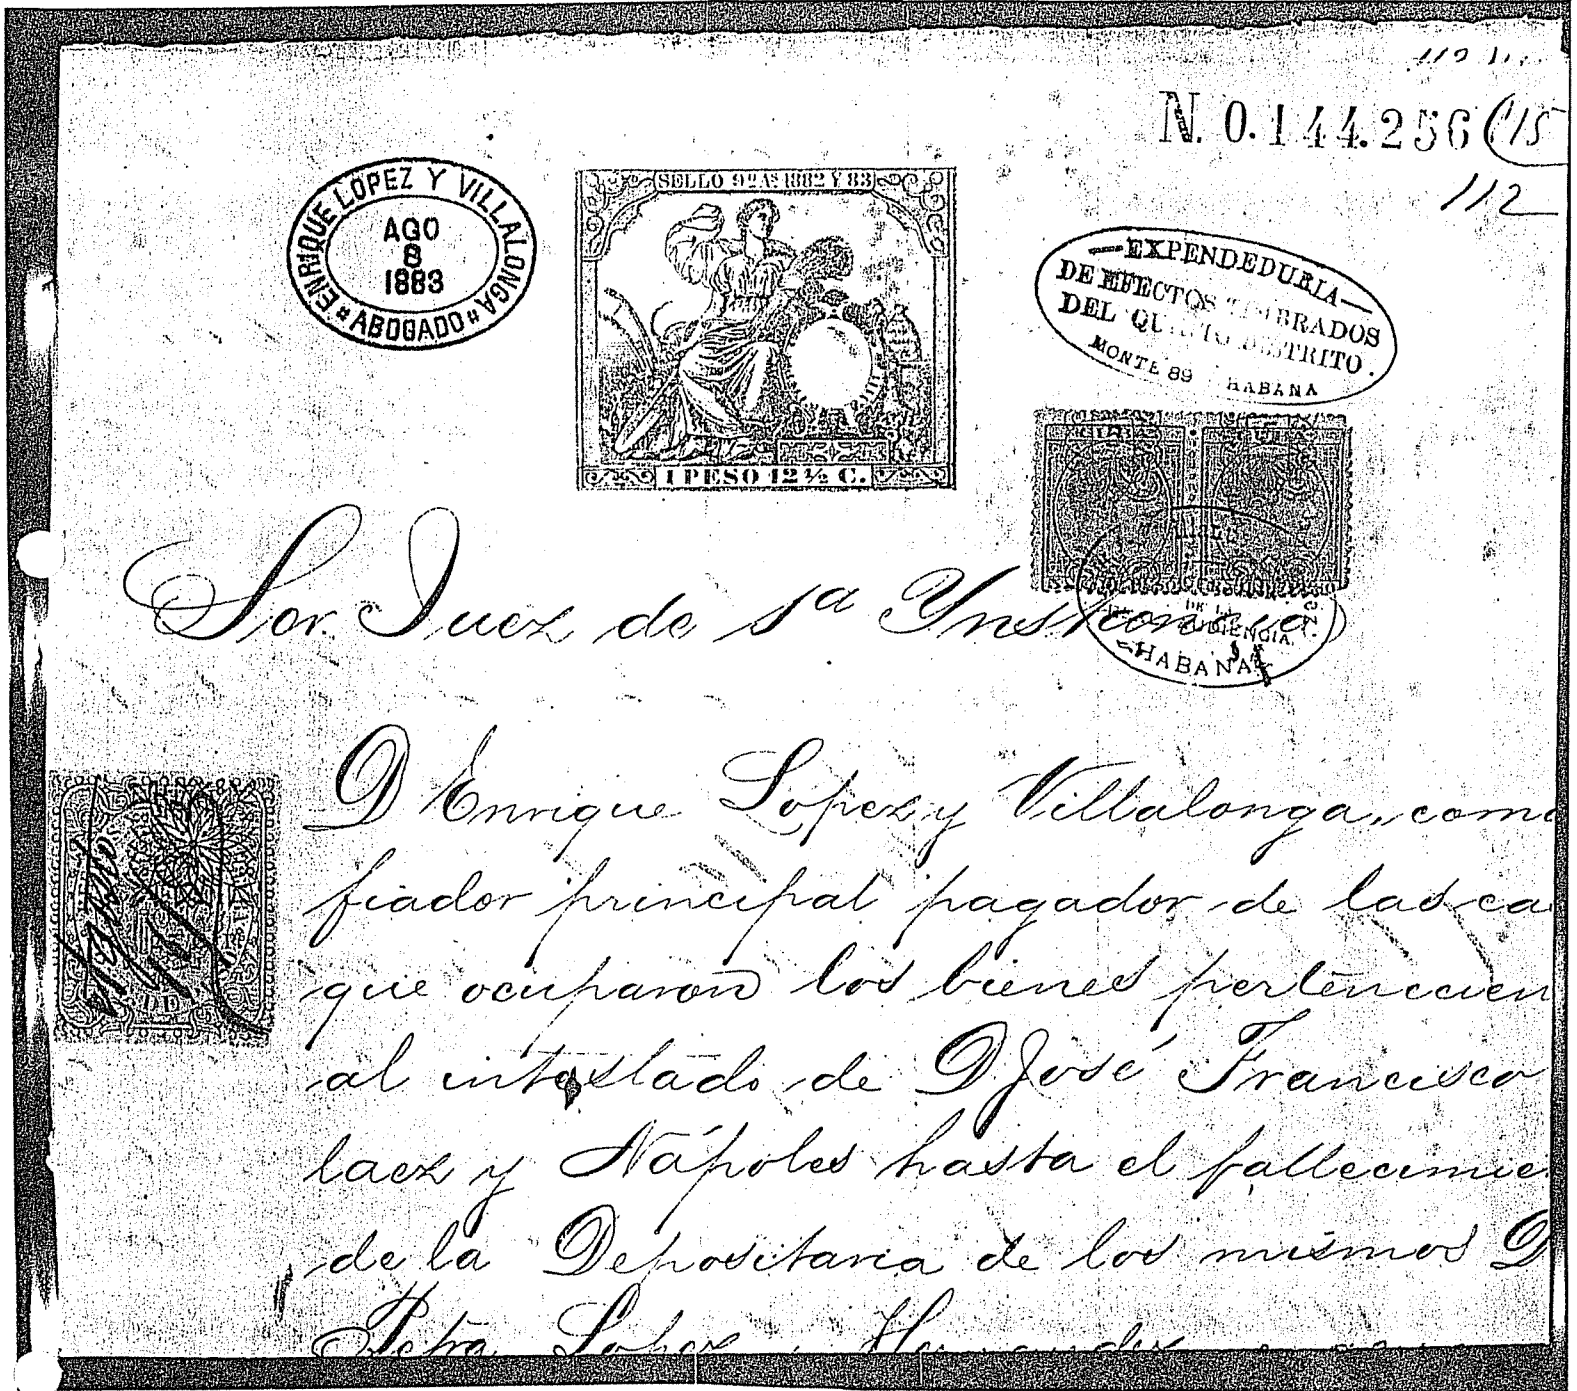 N. 0.144.256 115
112
ENRIQUE LOPEZ Y VILLALONGA
AGO
8
1883
ABOGADO
SELLO 9º AS 1882 Y 83
1 PESO 12 ½ C.
EXPENDEDURIA
DE EFECTOS TIMBRADOS
DEL QUINTO DISTRITO.
MONTE 89 HABANA
Sor. Juez de 1ª Ynstancia
DE LA
AUDIENCIA.
HABANA
D Enrique Lopez y Villalonga, como
fiador principal pagador de las ca
que ocuparon los bienes pertenecien
al intestado de D José Francisco
laez y Nápoles hasta el fallecimie
de la Depositaria de los mismos D
Petra Lopez Hernandez